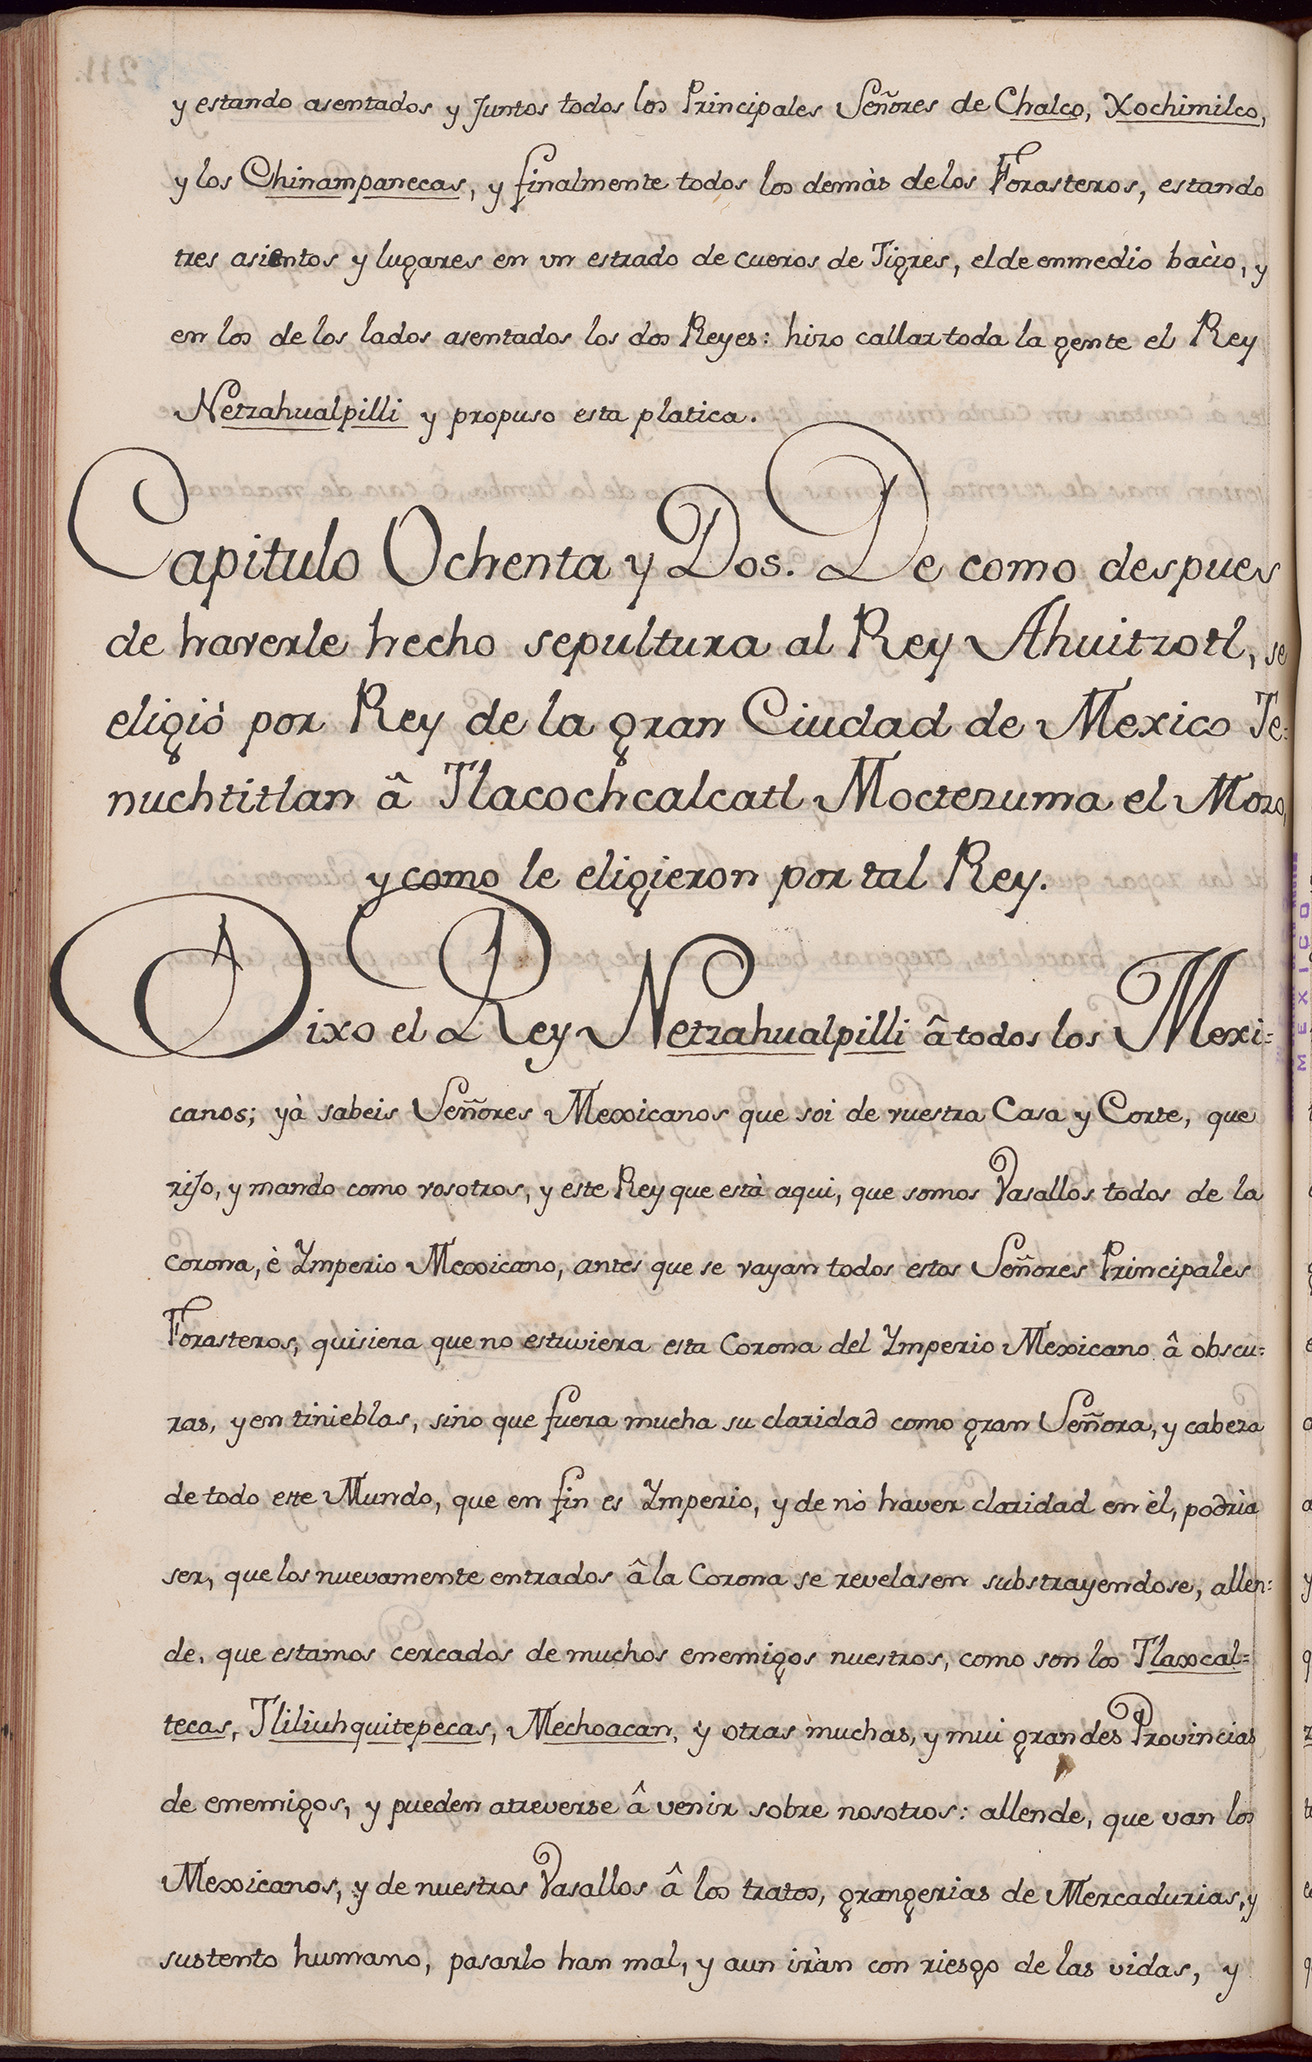 y estando asentados y Juntos todos los Principales Señores de Chalco, Xochimilco,
y los Chinampanecas, y finalmente todos los demàs de los Forasteros, estando
tres asientos y lugares en un estrado de cueros de Tigres, el de enmedio bacìo, y
en los de los lados asentados los dos Reyes: hizo callar toda la gente el Rey
Netzahualpilli y propuso esta platica.
Capitulo Ochenta y Dos. De como despues
de haverle hecho sepultura al Rey Ahuitzotl, se
eligiò por Rey de la gran Ciudad de Mexico Te=
nuchtitlan â Tlacochcalcatl Moctezuma el Mozo,
y como le eligieron por tal Rey.
Dixo el Rey Netzahualpilli â todos los Mexi=
canos; yà sabeis Señores Mexicanos que soi de vuestra Casa y Corte, que
rijo, y mando como vosotros, y este Rey que està aqui, que somos Vasallos todos de la
Corona, è Ymperio Mexicano, antes que se vayan todos estos Señores Principales
Forasteros, quisiera que no estuviera esta Corona del Ymperio Mexicano â obscu=
ras, y en tinieblas, sino que fuera mucha su claridad como gran Señora, y cabeza
de todo este Mundo, que en fin es Ymperio, y de nò haver claridad en èl, podrìa
ser, que los nuevamente entrados â la Corona se revelasen substrayendose, allen=
de, que estamos cercados de muchos enemigos nuestros, como son los Tlaxcal=
tecas, Tliliuhquitepecas, Mechoacan, y otras muchas, y mui grandes Provincias
de enemigos, y pueden atreverse â venir sobre nosotros: allende, que van los
Mexicanos, y de nuestros Vasallos â los tratos, grangerias de Mercadurias, y
sustento humano, pasarlo han mal, y aun iràn con riesgo de las vidas, y
211.
MEXICO